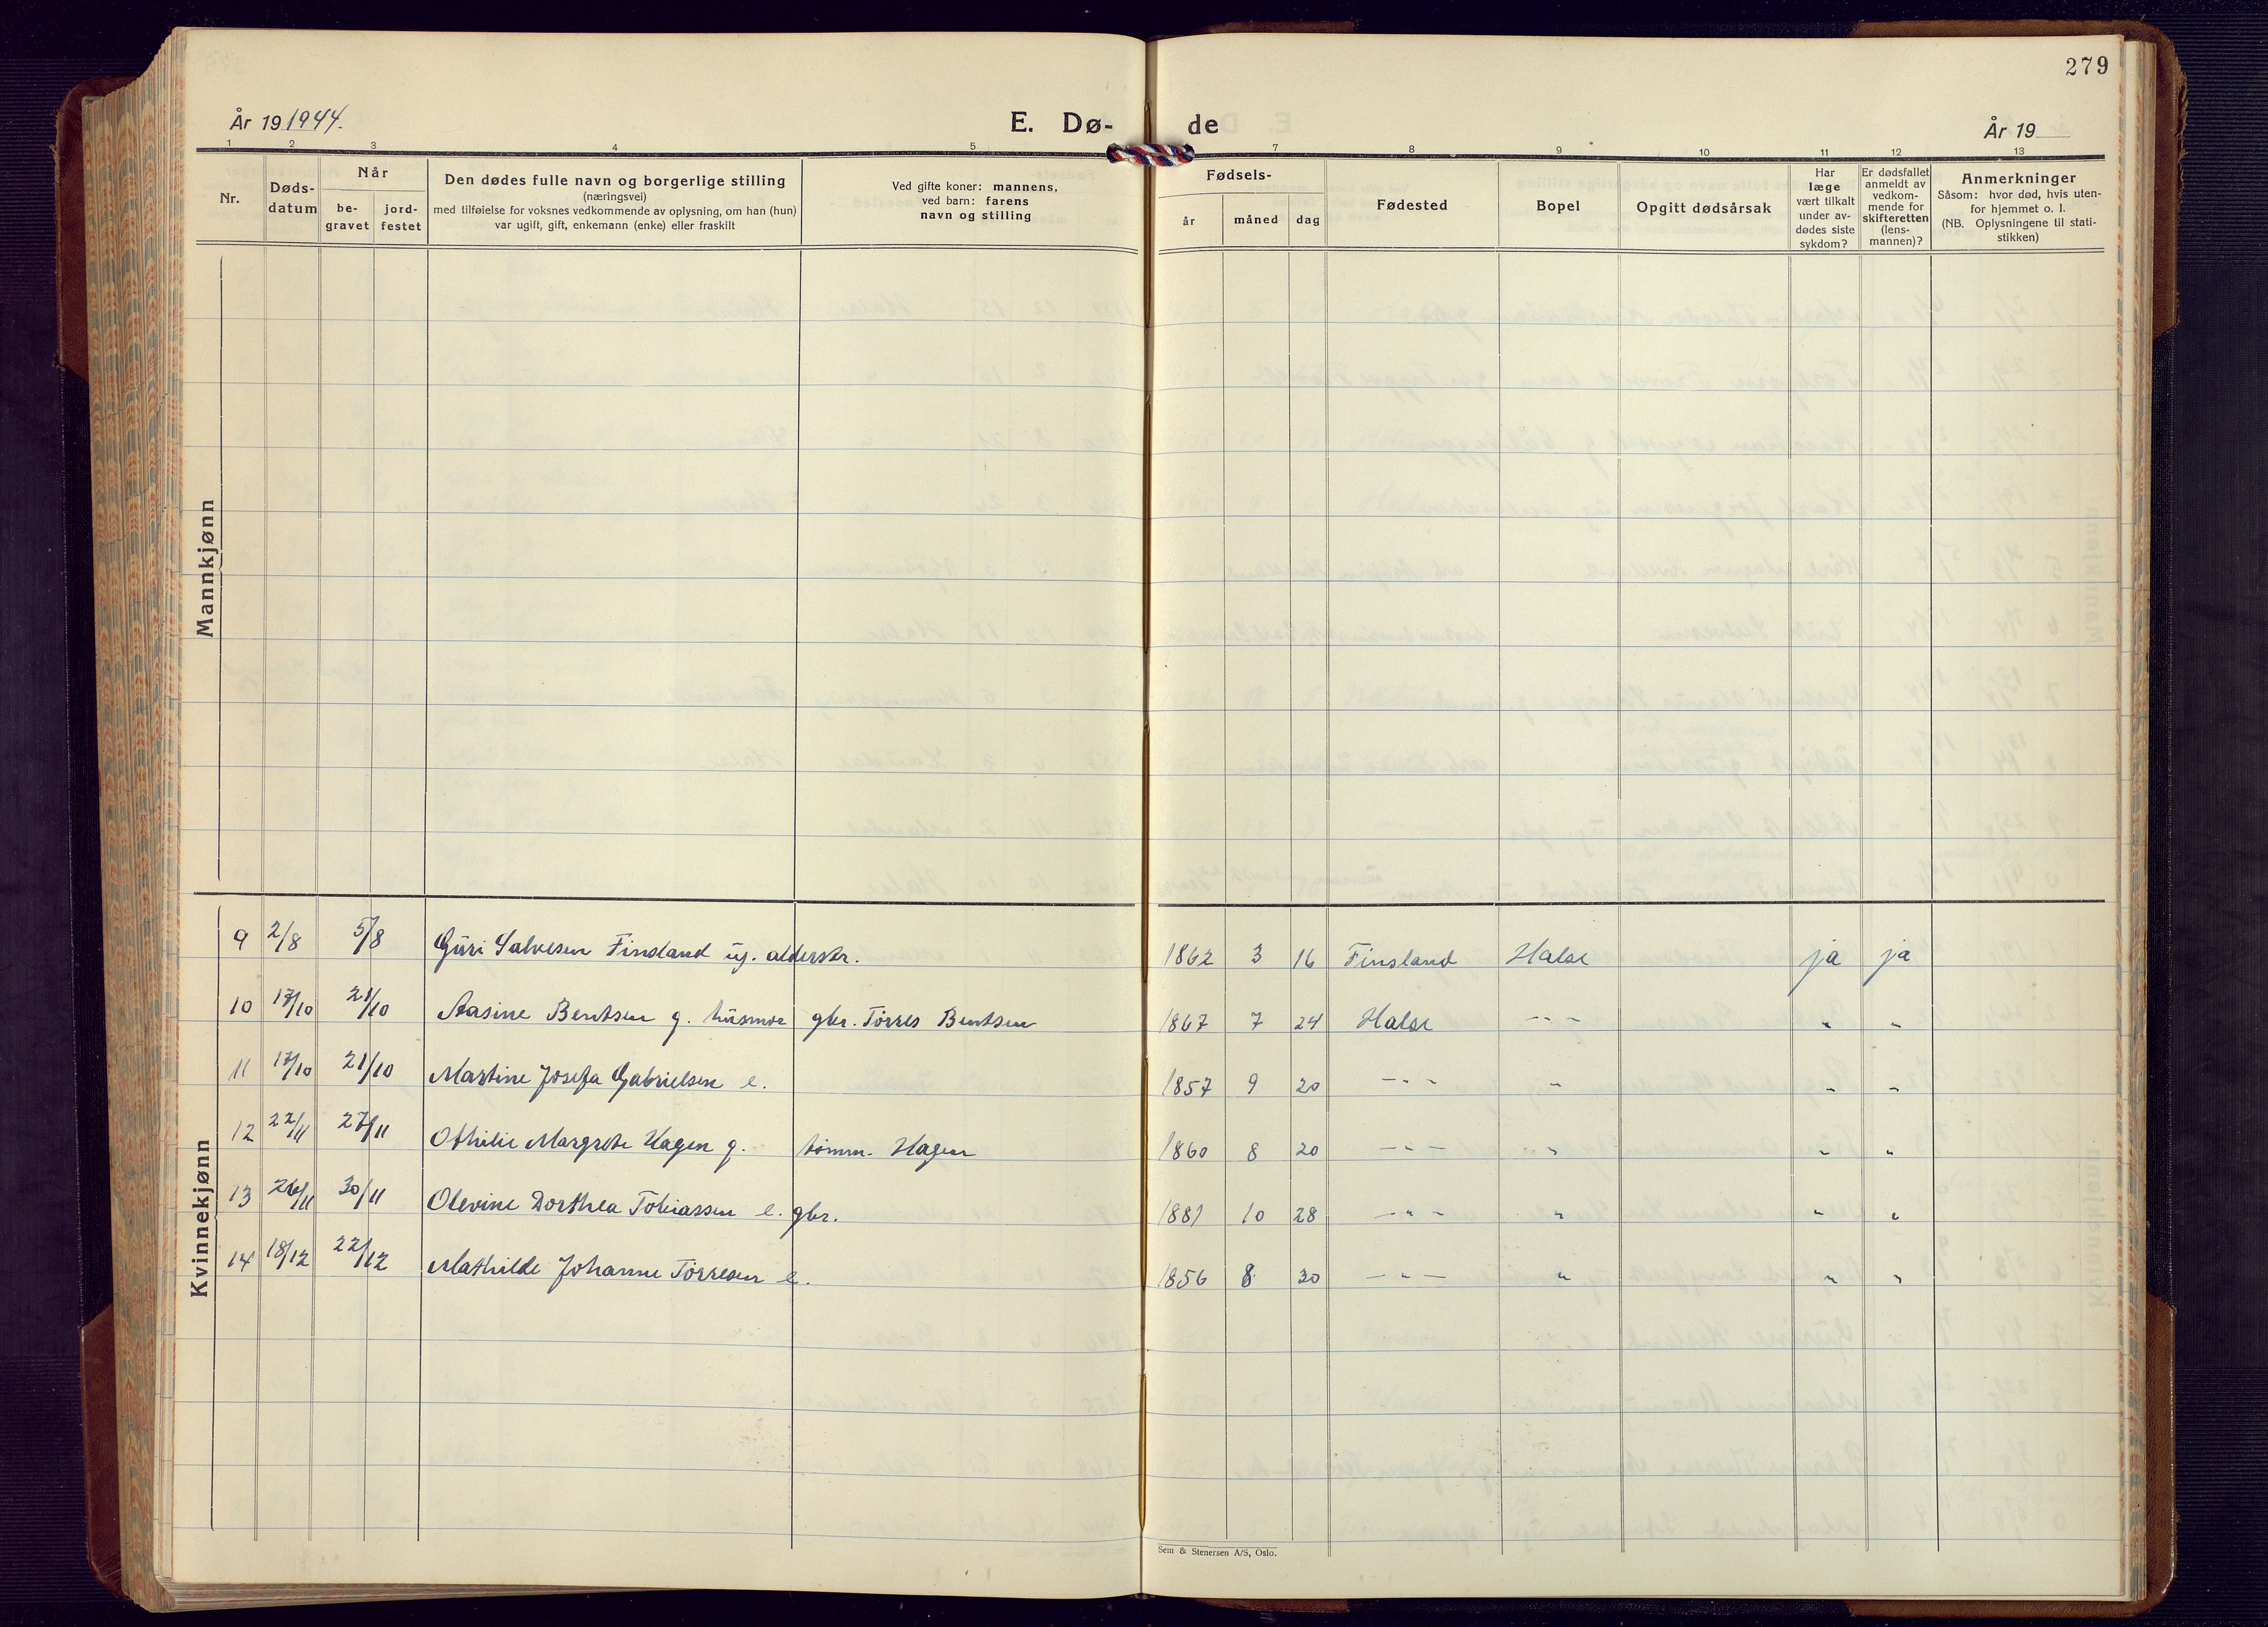 279
År 19 1944.
E. Dø-
de
År 19
1 2 3 4 5 7 8 9 10 11 12 13
Nr.
Døds-
datum
Når
be-
gravet
jord-
festet
Den dødes fulle navn og borgerlige stilling
(næringsvei)
med tilføielse for voksnes vedkommende av oplysning, om han (hun)
var ugift, gift, enkemann (enke) eller fraskilt
Ved gifte koner: mannens,
ved barn: farens
navn og stilling
Fødsels-
år
måned
dag
Fødested
Bopel
Opgitt dødsårsak
Har
læge
vært tilkalt
under av-
dødes siste
sykdom?
Er dødsfallet
anmeldt av
vedkom-
mende for
skifteretten
(lens-
mannen)?
Anmerkninger
Såsom: hvor død, hvis uten-
for hjemmet o. l.
(NB. Oplysningene til stati-
stikken)
Mannkjønn
Kvinnekjønn
9 2/8 5/8 Guri Salvesen Finsland ug. alderstr. 1862 3 16 Finsland Halse ja ja
10 17/10 21/10 Aasine Bentsen g. husmor gbr. Tørres Bentsen 1867 7 24 Halse -"- " "
11 17/10 21/10 Martine Josefa Gabrielsen e. 1857 9 20 -"- " " "
12 22/11 27/11 Othilie Margrete Hagen g. tømm. Hagen 1860 8 20 -"- " " "
13 26/11 30/11 Olevine Dorthea Tobiassen e. gbr. 1881 10 28 -"- " " "
14 18/12 22/12 Mathilde Johanne Tørresen e. 1856 8 30 -"- " " "
Sem & Stenersen A/S, Oslo.